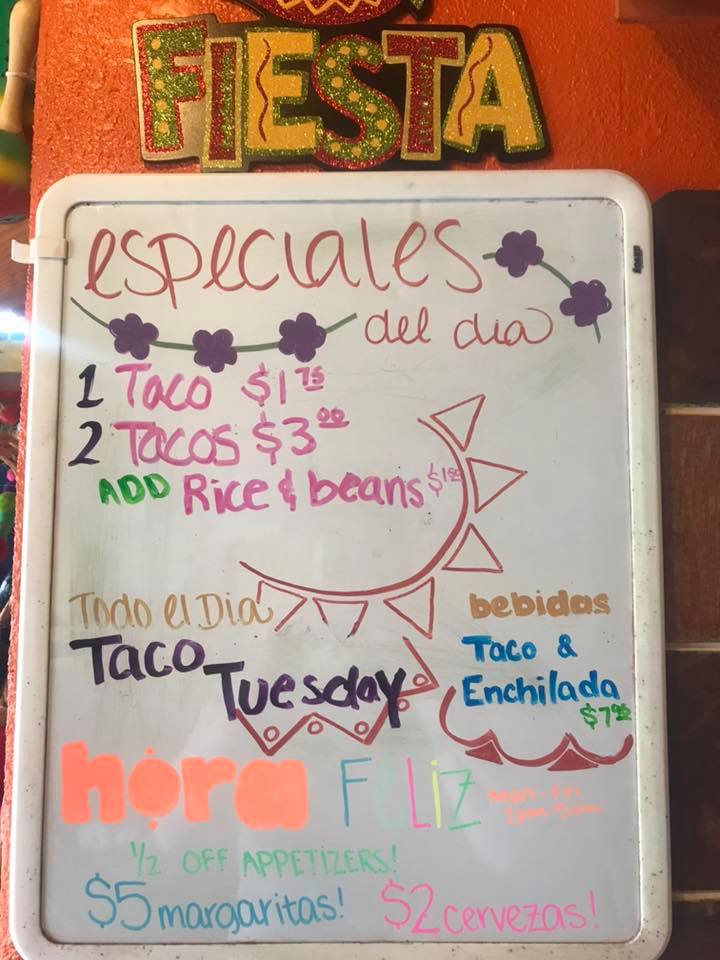 FIESTA
especiales
del dia
1 Taco $1.75
2 Tacos $3.00
ADD Rice & beans
Todo el Dia
bebidas
Taco Tuesday
Taco &
Enchilada
hora FELIZ
1/2 OFF APPETIZERS!
$5 margaritas! $2 cervezas!